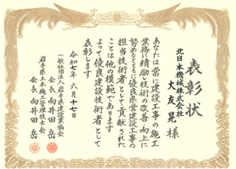 表彰状
北日本機械株式会社
大友晃 様
あなたは常に建設工事の施工
業務に精励し技術の改善・向上に
努めるとともに優良県営建設工事の
担当技術者として貢献された
ことは他の模範であります
よって優良建設技術者として
表彰します
令和七年六月十七日
一般社団法人岩手県建設業協会
会長 向井田 岳
岩手県土木施工管理技士会
会長 向井田 岳